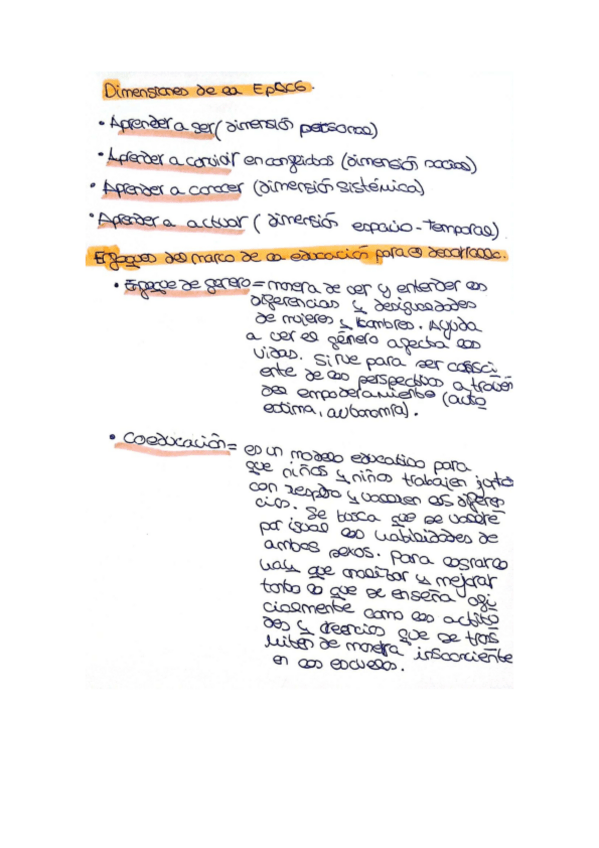 Dimensiones de la EpDCG.
• Aprender a ser (dimensión personal)
• Aprender a convivir en conjunto (dimensión social)
• Aprender a conocer (dimensión sistémica)
• Aprender a actuar (dimensión espacio-temporal)
Enfoques del marco de la educación para el desarrollo.
• Enfoque de género = manera de ver y entender las
diferencias y desigualdades
de mujeres y hombres. Ayuda
a ver el género afecta las
vidas. Sirve para ser consci
ente de las perspectivas a través
del empoderamiento (auto
estima, autonomía).
• Coeducación = es un modelo educativo para
que niñas y niños trabajen juntos
con respeto y valoren las diferen
cias. Se busca que se valore
por igual las habilidades de
ambos sexos. Para lograrlo
hay que analizar y mejorar
todo lo que se enseña ofi
cialmente como las actitu
des y creencias que se trans
miten de manera insconciente
en las escuelas.